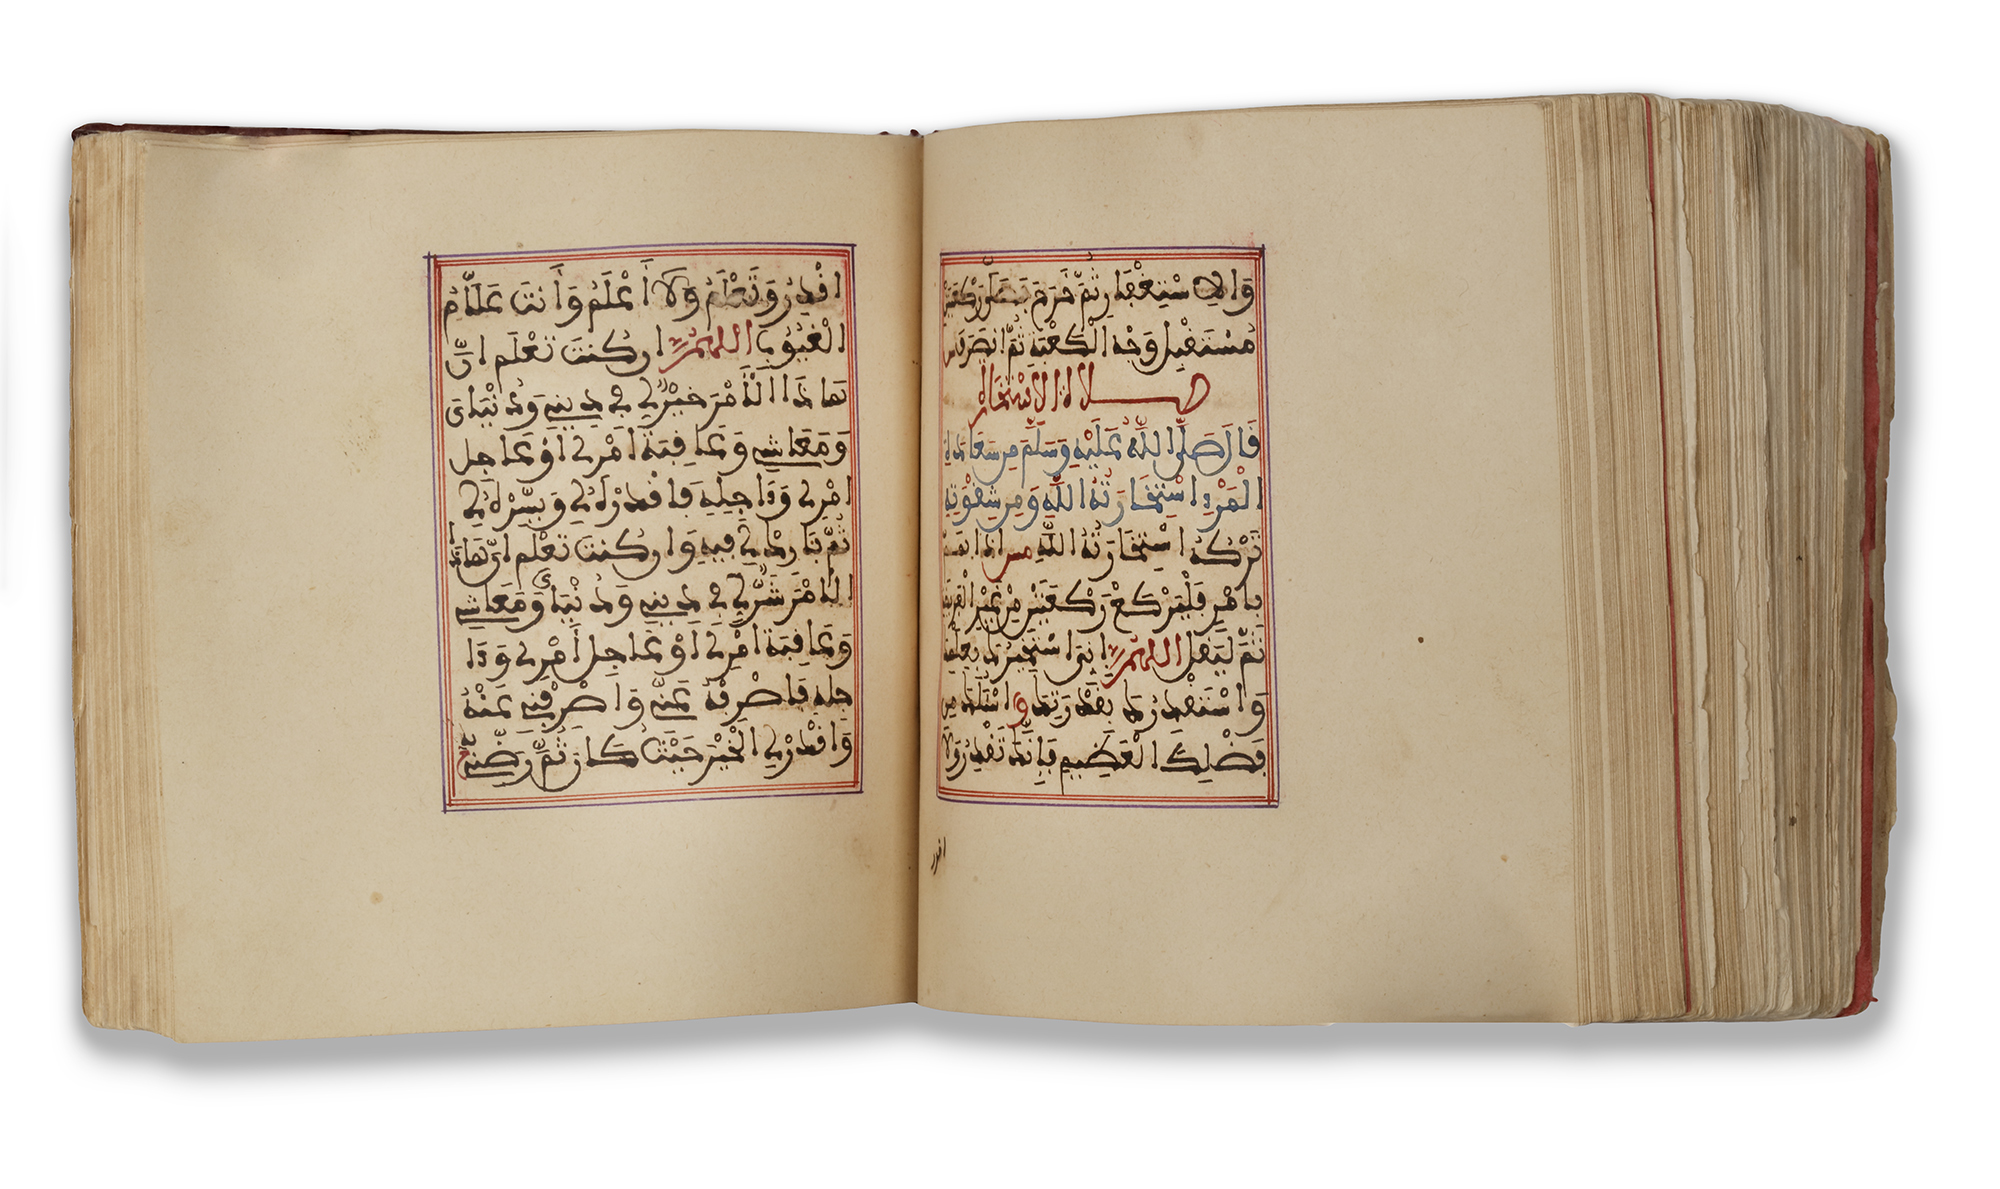 وَالاِسْتِغْفَارِ ثُمَّ خَرَجَ فَصَلَّى رَكْعَتَيْنِ
مُسْتَقْبِلَ وَجْهِ الْكَعْبَةِ ثُمَّ انْصَرَفَ
صلاة الاسْتخارة
قَالَ صَلَّى اللَّهُ عَلَيْهِ وَسَلَّمَ مِن سَعَادَةِ
الْمَرْءِ اسْتِخَارَتُهُ اللَّهَ وَمِن شِقْوَتِهِ
تَرْكُهُ اسْتِخَارَتَهُ اللَّهَ اذا
بِأَمْرٍ فَلْيَرْكَعْ رَكْعَتَيْنِ مِنْ غَيْرِ الْفَرِيضَةِ
ثُمَّ لْيَقُلِ اللهم إني اسْتَخِيرُكَ بِعِلْمِكَ
وَاسْتَقْدِرُكَ بِقُدْرَتِكَ وَاسْئَلُكَ مِن
فَضْلِكَ الْعَظِيمِ فَإِنَّكَ تَقْدِرُ وَلاَ
اقدر
اقْدِرُ وَتَعْلَمُ وَلاَ أَعْلَمُ وَأَنتَ عَلَّامُ
الْغُيُوبِ اللهم ان كُنتَ تَعْلَم انَّ
هَاذَا الَامْرَ خَيْرٌ لِي فِي دِينِي وَدُنْيَايَ
وَمَعَاشِي وَعَاقِبَةِ امْرِي اوْ عَاجِلِ
امْرِي وَءَاجِلِهِ فَاقْدُرْهُ لِي وَيَسِّرْهُ لِي
ثُمَّ بَارِكْ لِي فِيهِ وَان كُنتَ تَعْلَم انَّ هَاذَا
الَامْرَ شَرٌّ لِي فِي دِينِي وَدُنْيَايَ وَمَعَاشِي
وَعَاقِبَةِ امْرِي اوْ عَاجِلِ أَمْرِي وَءَا
جِلِهِ فَاصْرِفْهُ عَنِّي وَاصْرِفْنِي عَنْهُ
وَاقْدُرْ لِي الْخَيْرَ حَيْثُ كَانَ ثُمَّ رَضِّنِي